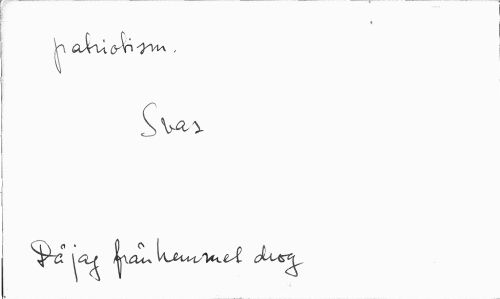 patriotism.
Svas
Då jag från hemmet drog